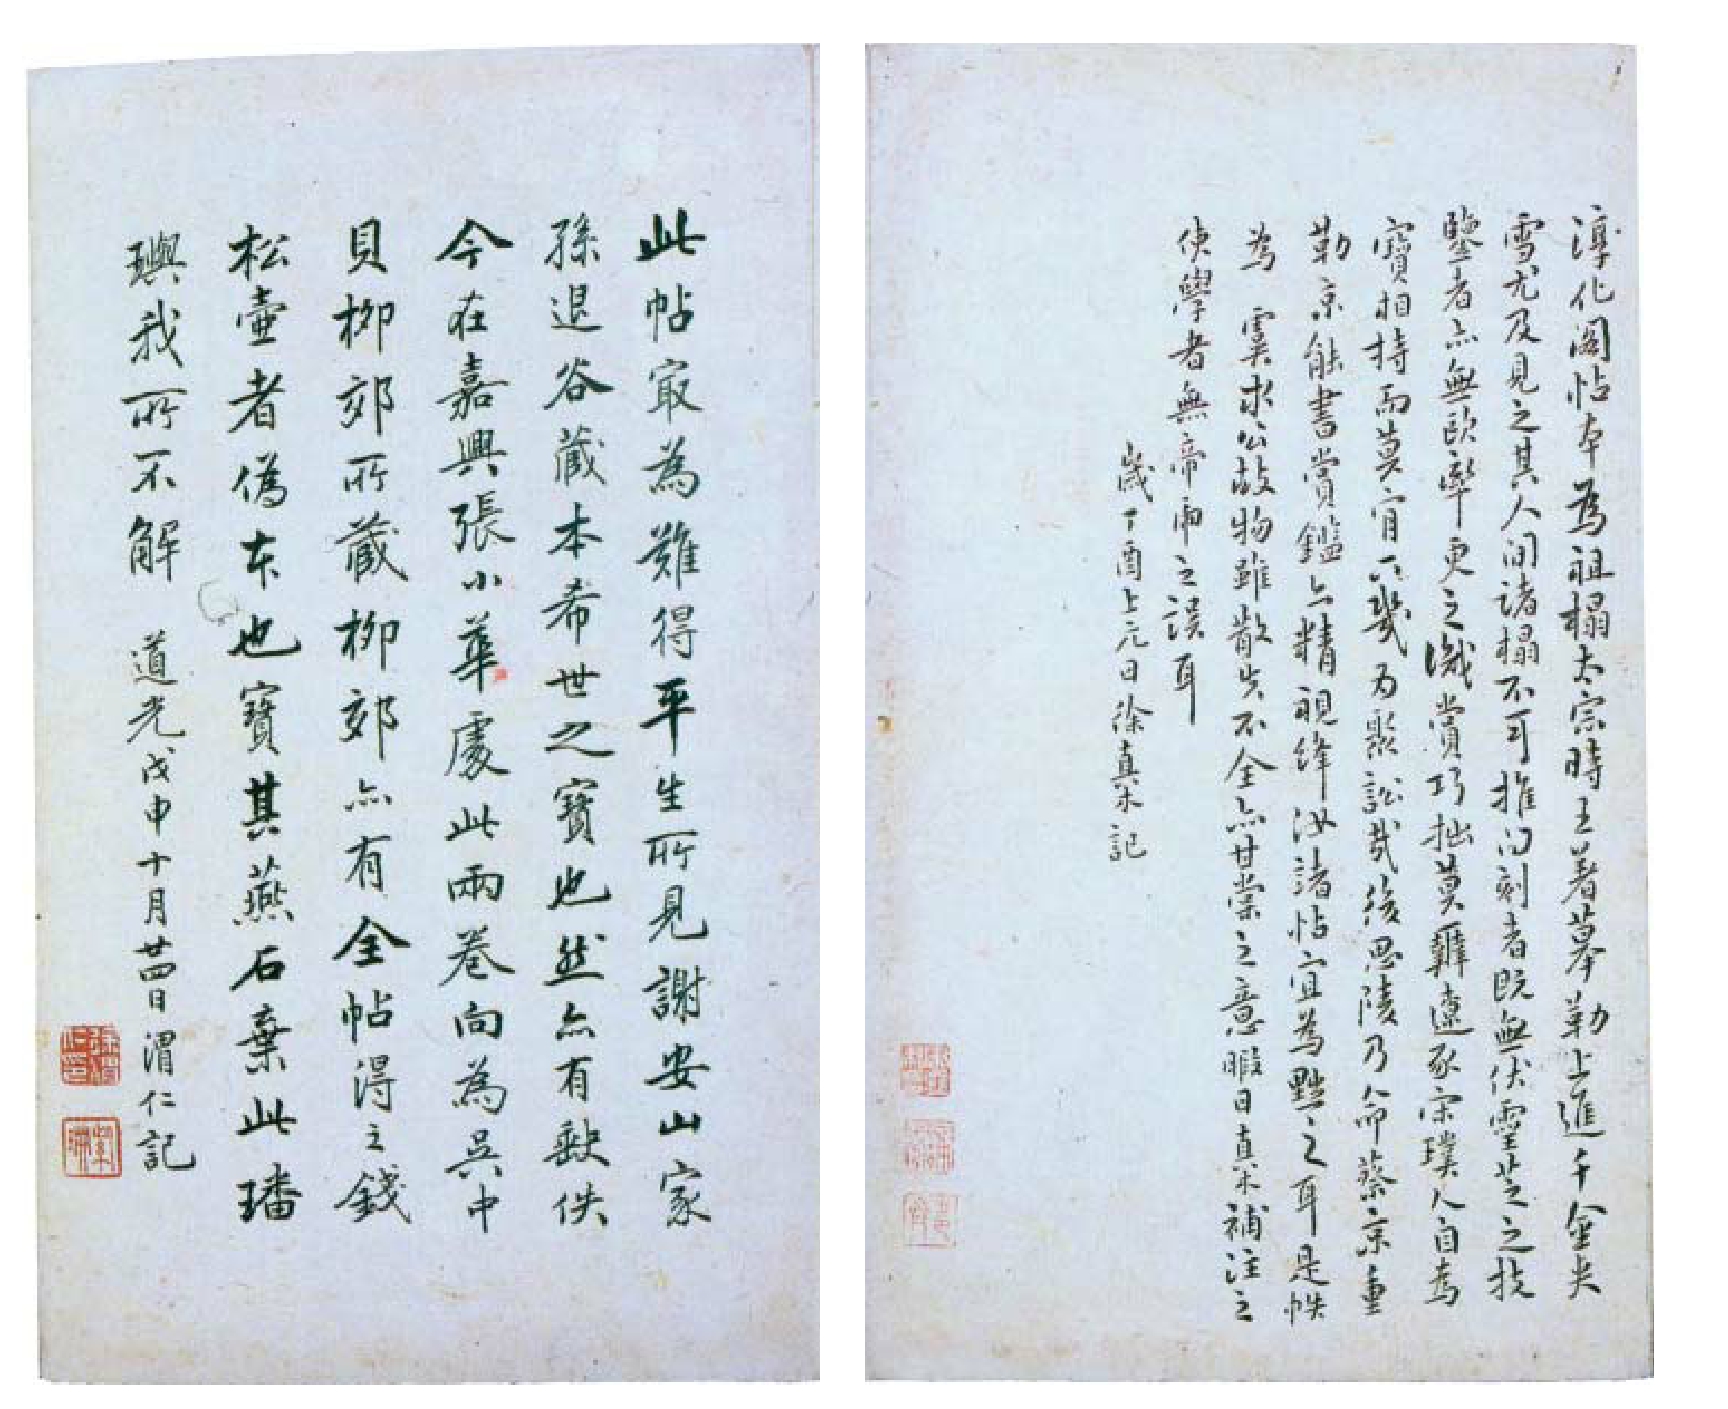 淳化閣帖本為祖榻太宗時王著摹勒上進千金夫
雪尤及見之其人間諸榻不可推的刻者既無伏靈芝之技
鑒者亦無歐率更之識賞巧拙莫辨遼豕宋璞人自為
寶相持而莫肯下幾為聚訟哉後思陵乃命蔡京重
勒京能書賞鑑亦精視絳汝諸帖宜為點之耳是帙
為 虞求公故物雖散失不全亦甘棠之意暇日真木補注之
使學者無帝虎之誤耳
歲丁酉上元日徐真木記
此帖寂為難得平生所見謝安山家
孫退谷藏本希世之寶也然亦有缺佚
今在嘉興張小華處此兩卷向為吳中
貝柳郊所藏柳郊亦有全帖得之錢
松壺者偽本也寶其燕石棄此璠
璵我所不解 道光戊申十月廿四日渭仁記